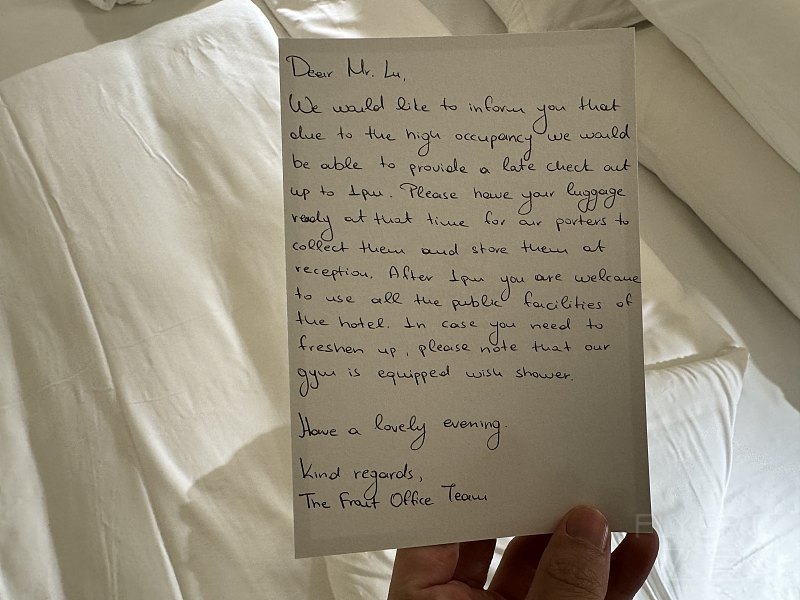 Dear Mr. Lu,
We would like to inform you that
due to the high occupancy we would
be able to provide a late check out
up to 1pm. Please have your luggage
ready at that time for our porters to
collect them and store them at
reception. After 1pm you are welcome
to use all the public facilities of
the hotel. In case you need to
freshen up, please note that our
gym is equipped wish shower.
Have a lovely evening.
Kind regards,
The Front Office Team